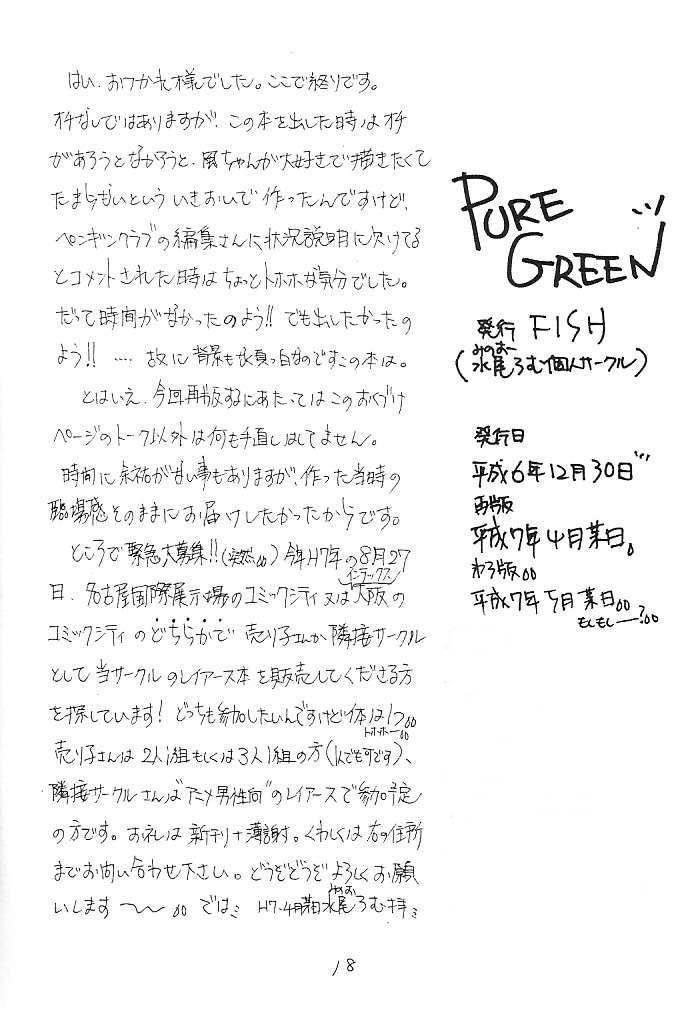 はい、おつかれ様でした。ここで終りです。
オチなしではありますが、この本を出した時はオチ
があろうとなかろうと、風ちゃんが大好きで描きたくて
たまらないといういきおいで作ったんですけど、
ペンギンクラブの編集さんに状況説明に欠けてる
とコメントされた時はちょっとトホホな気分でした。
だって時間がなかったのよう!! でも出したかったの
よう!! …. 故に背景も水真っ白なのですこの本は。
とはいえ、今回再版するにあたってはこのおくづけ
ページのトーク以外は何も手直しはしてません。
時間に余裕が甘い事もありますが、作った当時の
臨場感そのままにお届けしたかったからです。
ところで緊急大募集!!(突然。。) 今年H7年の8月27
日、名古屋国際展示場のコミックシティ又は大阪の
インテックス
コミックシティのどちらかで 売り子さんか隣接サークル
として当サークルのレイアース本を販売してくださる方
を探しています! どっちも参加したいんですけど体は1つ。。
トホホー。。
売り子さんは2人1組もしくは3人1組の方(1人でも可です)、
隣接サークルさんは"アニメ男性向"のレイアースで参加予定
の方です。お礼は新刊+薄謝。くわしくは右の住所
までお問い合わせ下さい。どうぞどうぞよろしくお願
いします 〜〜 。。 では ミ H7.4月某日 水尾ろむ拝 ミ
みのお
PURE
GREEN
発行 FISH
みのおー
(水尾ろむ個人サークル)
発行日
平成6年12月30日
再版
平成7年4月某日。
わろ版。。
平成7年5月某日。。
もしもしー?。。
18